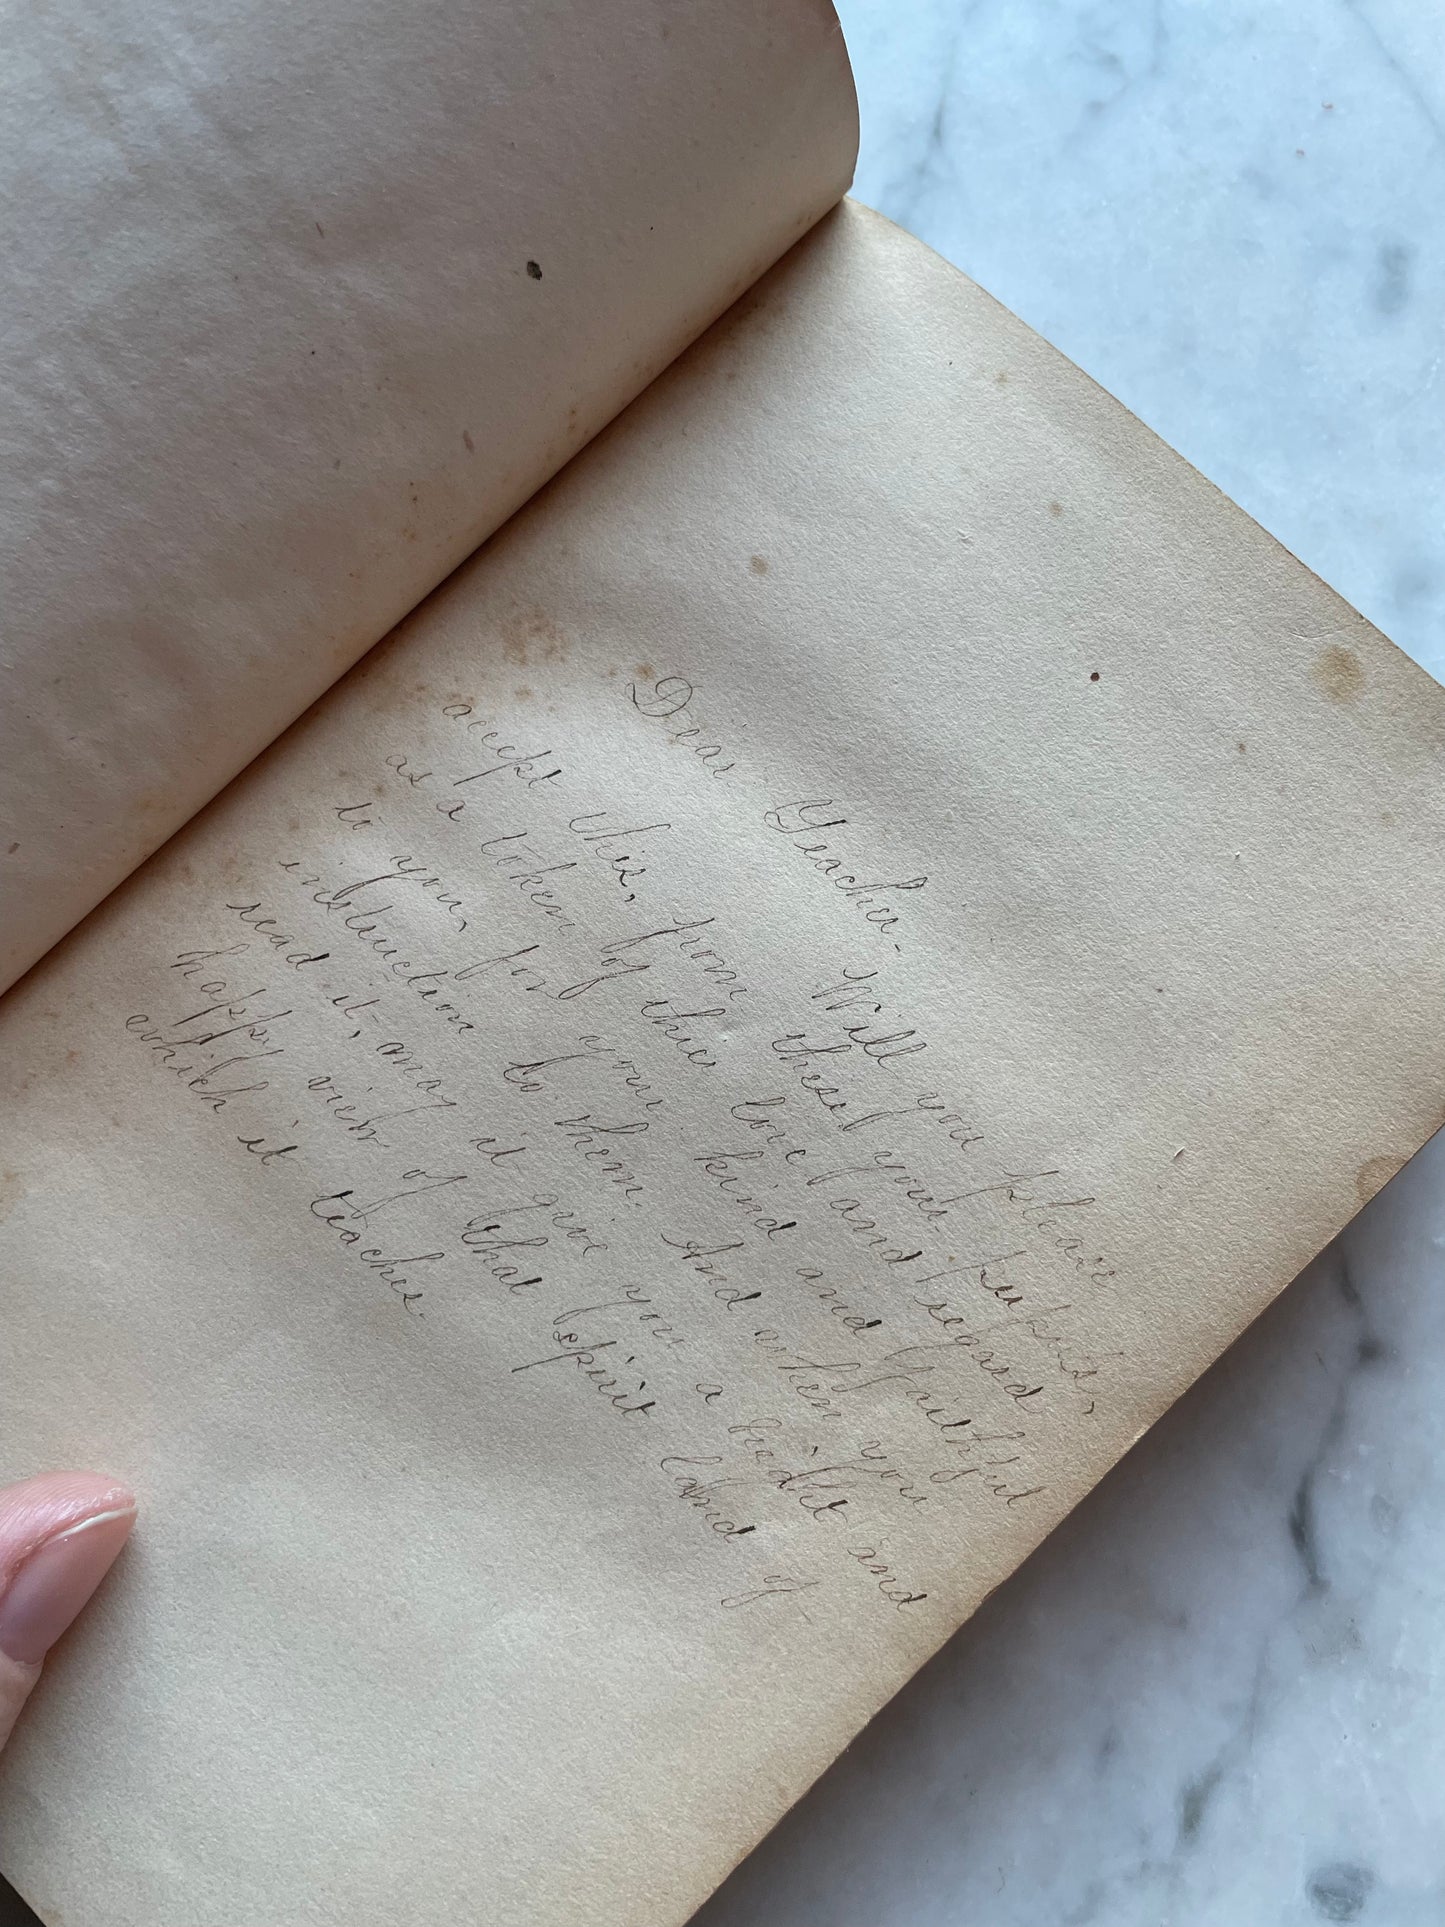 Dear Teacher. Will you please
accept this, from these your pupils,
as a token of thier love and regard
to you, for your kind and faithful
instruction to them. And when you
read it, may it give you a bright and
happy view of that spirit land of
which it teaches.